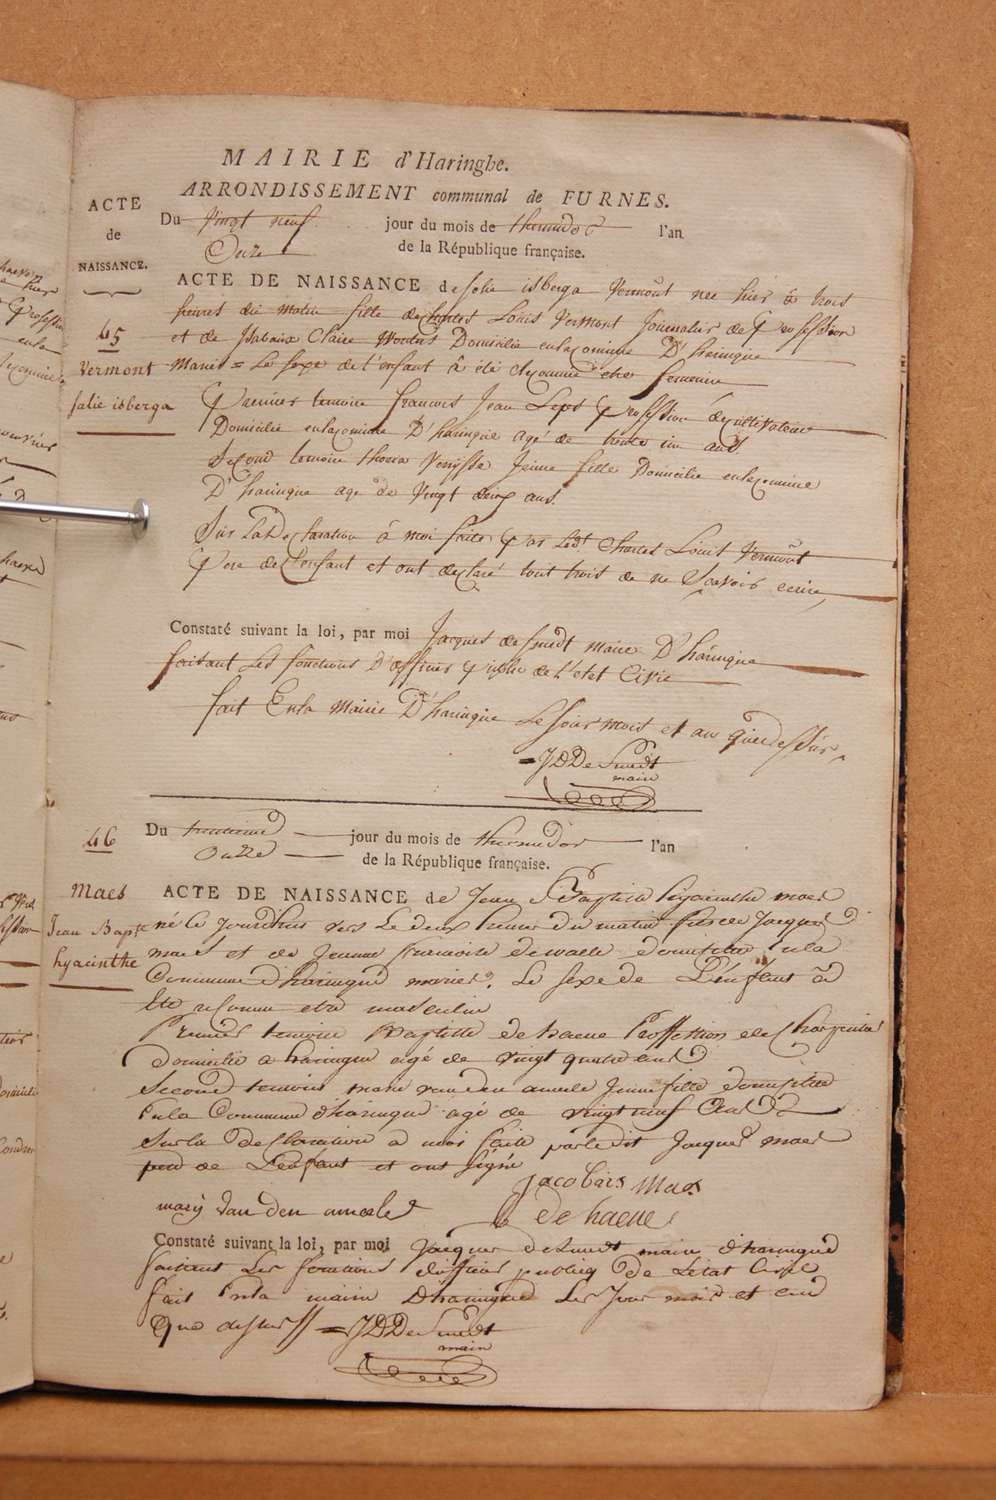 MAIRIE d'Haringhe.
ARRONDISSEMENT communal de FURNES.
ACTE
de
NAISSANCE.
Du vingt neuf jour du mois de thermidor l'an
Onze de la République française.
45
Vermont
falie isberga
ACTE DE NAISSANCE de isberga Vermont nee hier à trois
heures du matin fille de Charles Louis Vermont Journalier de Profession
et de Isabaux Claire Wouters Domicilie enlacomune D'haringue
Mariés = Le sexe de l'enfant à été reconnue etre feminin
Premier temoin francois Jean Leps Profession de cultivateur
Domicilie enlacomune D'haringue agé de trente un ans
Second temoin Jeune fille Domicilie enlacomune
D'haringue age de Vingt deux ans.
Sur La Declaration à moi faite par Ledt Charles Louis Vermont
Pere de l'enfant et ont declaré tout trois de ne Scavoir ecrire,
Constaté suivant la loi, par moi Jacques de Smedt maire D'haringue
faisant Les fonctions D'officier Public de L'etat Civil
fait Enla Mairie D'haringue Le Jour mois et an que dessus,
= JD De Smedt
maire
46
Maes
Jean Bapte
hyacinthe
Du trentieme jour du mois de thermidor l'an
Onzze de la République française.
ACTE DE NAISSANCE de Jean Baptiste hyacinthe maes
né le jourdhuis vers Le deux heures du matin fils de Jacques
maes et de Jeanne francoise dewaele domicilie enla
Commune d'haringue mariés. Le sexe de L'enfant à
été reconnu etre masculin
Premier temoin Baptiste de haene Proffession de Charpentier
domicilie a haringue agé de vingt quatre ans
Second temoin marie van den ameele Jeune fille domicilie
Enla Commune d'haringue agé de vingt neuf ans
Sur la declaration a moi faite par le dit Jacques maes
pere de L'enfant et ont signe
Jacobus Maes
marij van den ameele
de haene
Constaté suivant la loi, par moi Jacques de Smedt maire d'haringue
faisant Les fonctions d'officier publiq De L'etat Civil
fait Enla mairie D'haringue Les Jour mois et an
Que dessus = JD De Smedt
maire